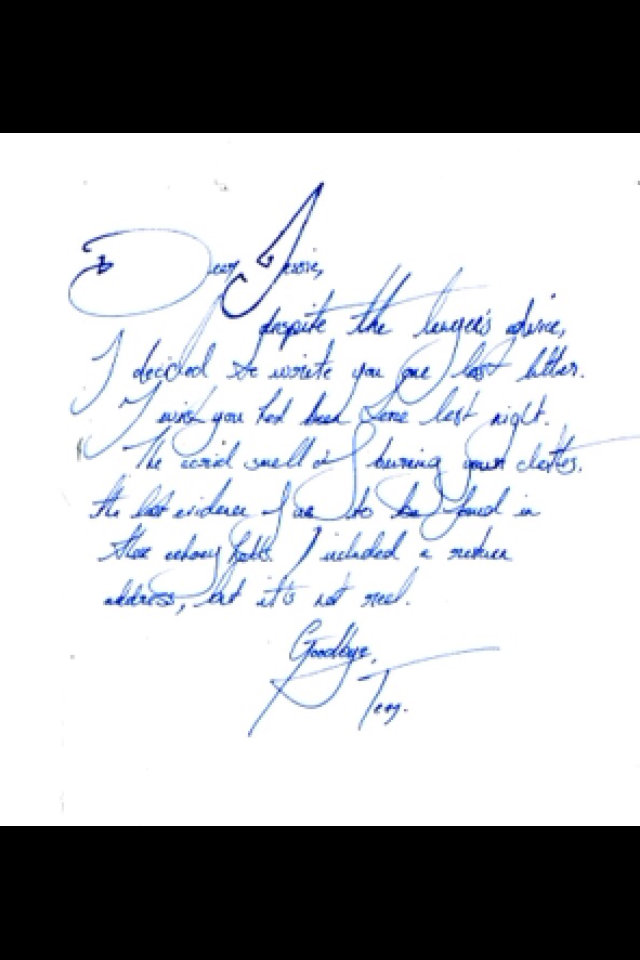 Dear Jessie,
despite the lawyer's advice,
I decided to write you one last letter.
I wish you had been here last night.
The acrid smell of burning your clothes,
the last evidence of us to be found in
these echoey halls. I included a return
address, but it's not real.
Goodbye,